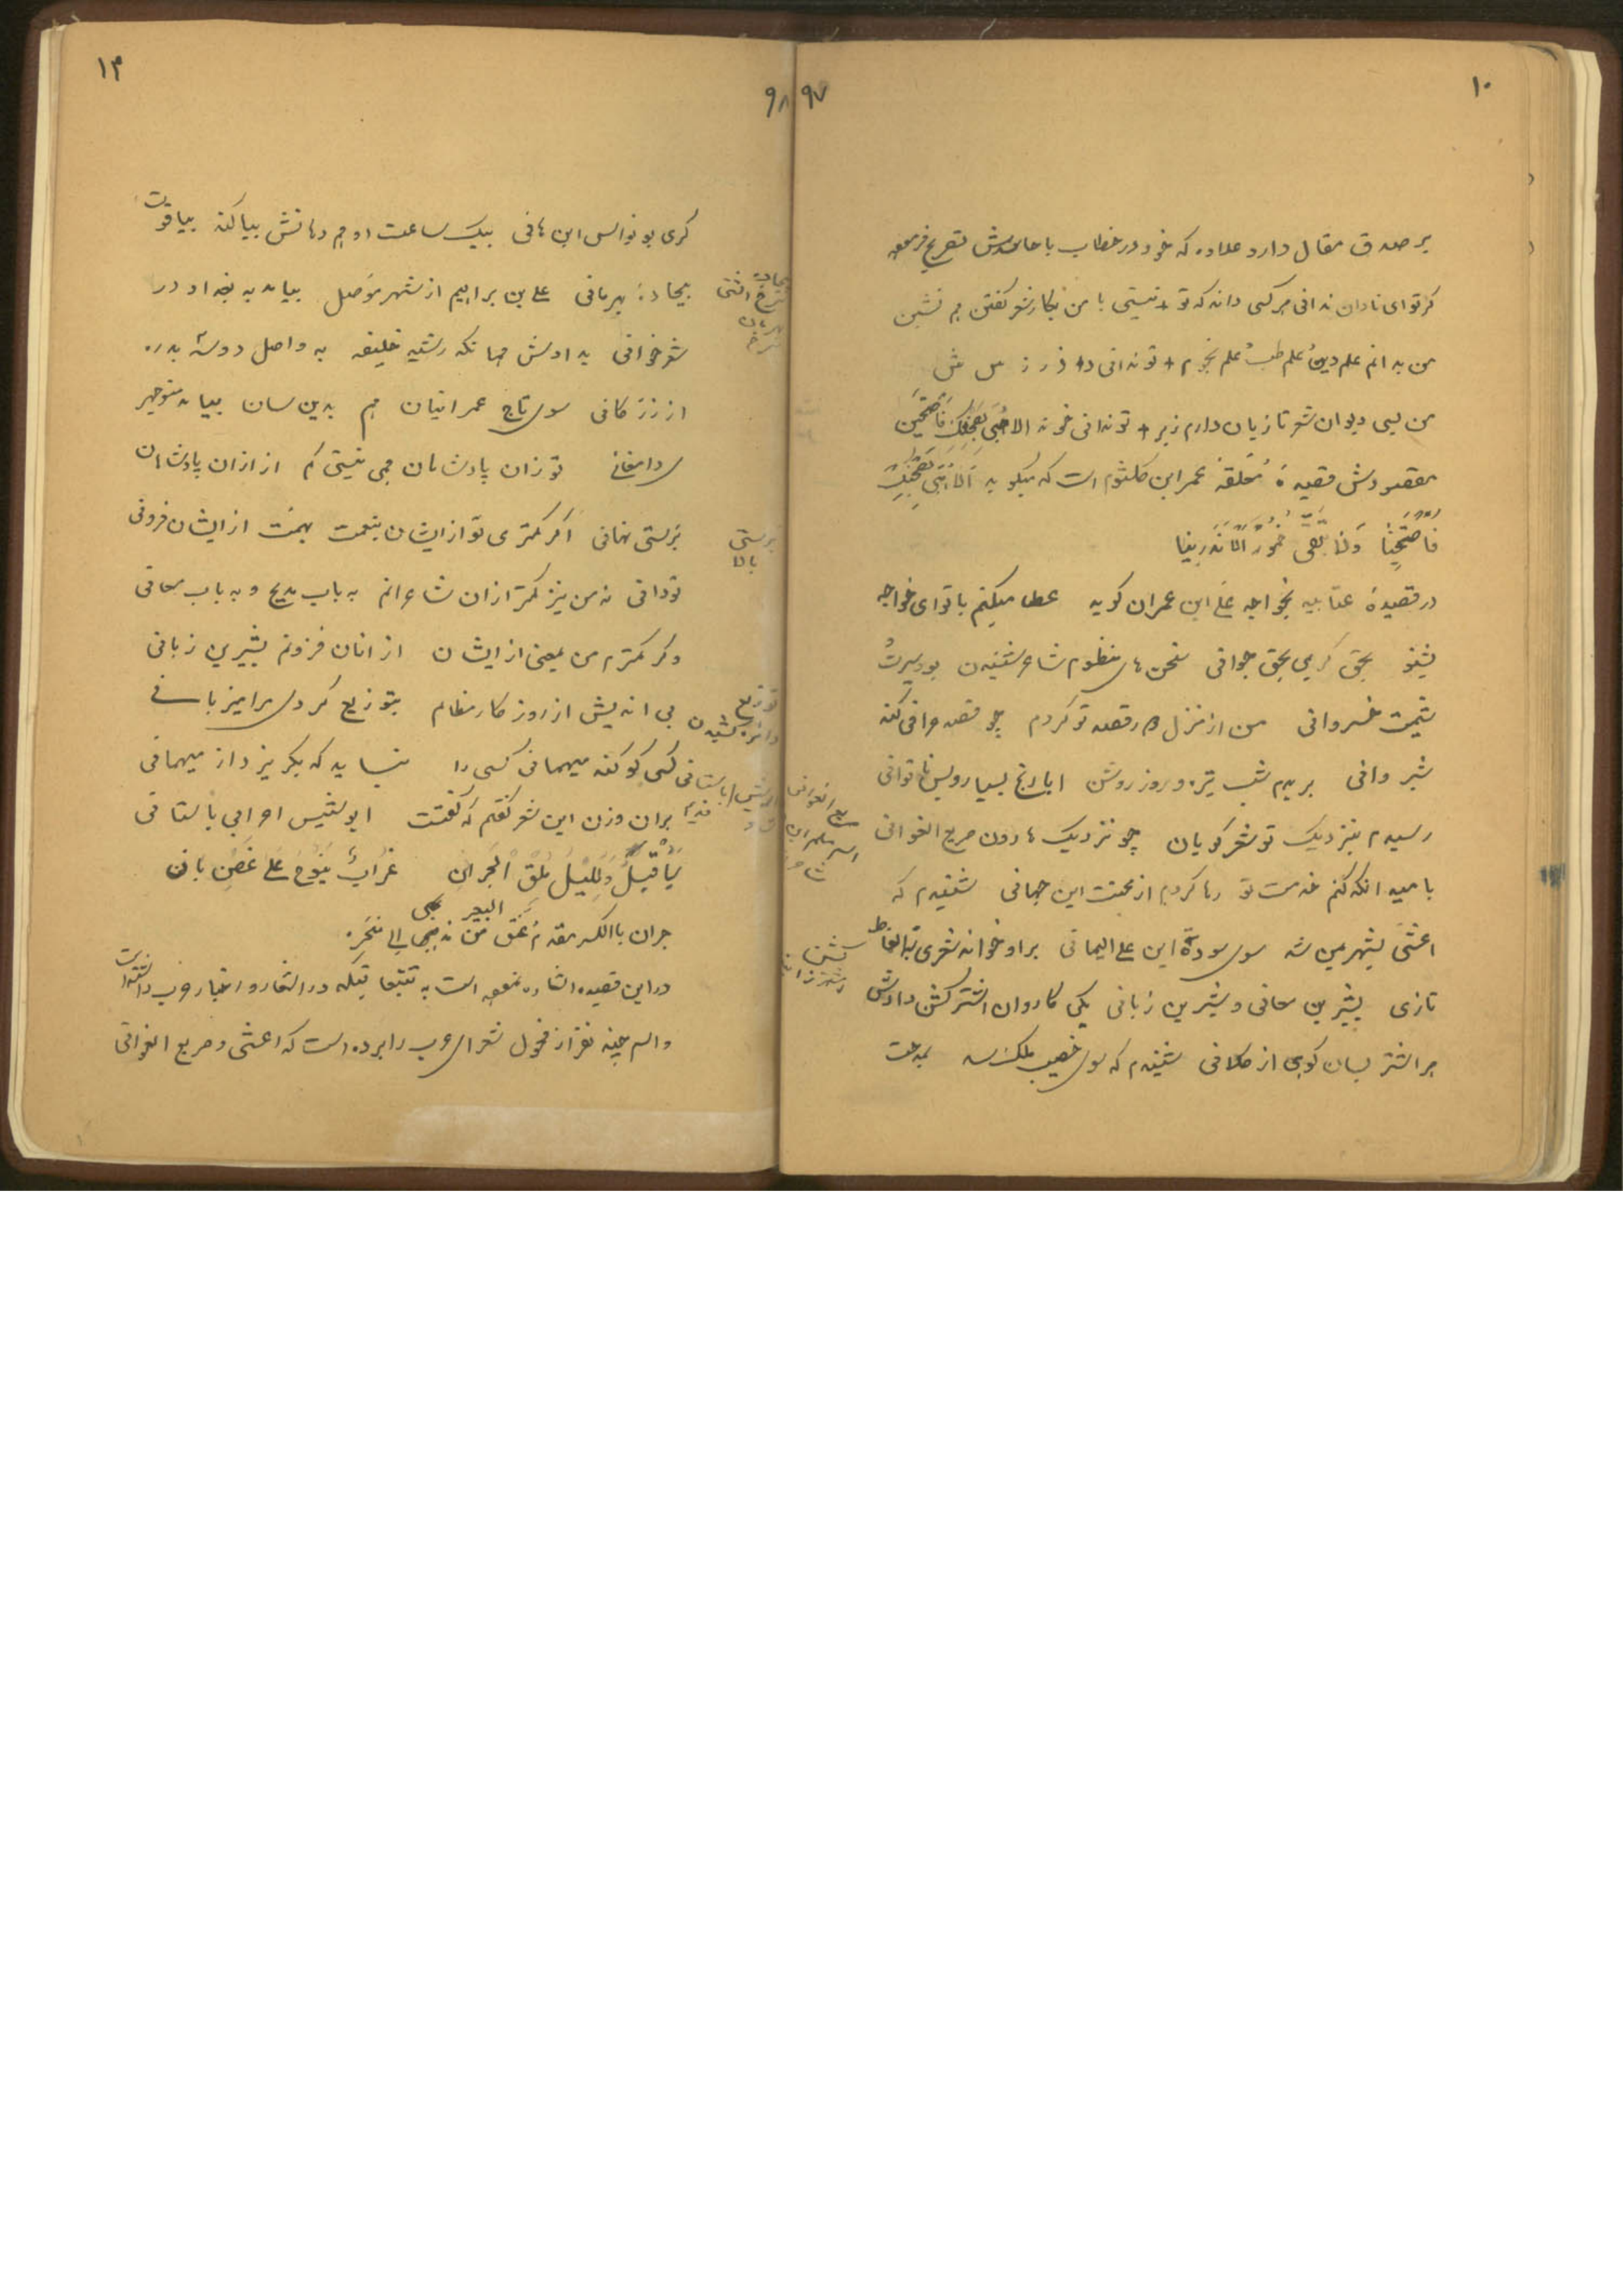 ۱۰
۹۷
بر صدق مقال دارد علاوه که خود در خطاب با حاسدش تصریح فرموده
گر تو ای نادان ندانی هر کسی داند که تو + نیستی با من بگاه شعر گفتن هم نشین
من بدانم علم دین و علم طب و علم نجوم + تو ندانی دال و ذال و ر ز س ش
من بسی دیوان شعر تازیان دارم زبر + تو ندانی خواند الا هبی بصحنک فاصبحین
مقصودش قصیدهٔ معلقه عمر ابن کلثوم است که میگوید الا هبی بصحنک
فاصبحینا ولا تبقی خمور الاندرینا
در قصیدهٔ عتابیه بخواجه علی ابن عمران گوید عطا میکنم با تو ای خواجه
بشنو بحق کریمی بحق جوانی سخن های منظوم شاعر شنیدن بود سیرت
شیمت خسروانی من از منزل دور قصد تو کردم چو قصد عراقی کند
شیروانی بریدم شب تیره و روز روشن ابا رنج بسیار و بس ناتوانی
رسیدم بنزدیک تو شعر گویان چو نزدیک هارون صریع الغوانی
بامید آنکه کنم خدمت تو رها گردم از محنت این جهانی شنیدم که
اعشی بشهر یمن شد سوی سودة ابن علی الیمانی بر او خواند شعری بالفاظ
تازی بشیرین معانی و شیرین زبانی یکی کاروان اشتر کشن دادش
هر اشتر بسان کوهی از کلانی شنیدم که سوی خصیب ملک شد بمدحت
۱۳
۹۸
گری بو نواس ابن هانی بیک ساعت او هم دهانش بیاکند بیاقوت
بیجادهٔ بهرمانی علی بن براهیم از شهر موصل بیامد به بغداد در
شعر خوانی بدادش همانگه رشید خلیفه به واصل دوشه بدره
از زر کانی سوی تاج عمرانیان هم بدین سان بیامد منوچهر
ی دامغانی تو زان پادشاهان همی نیستی کم از ازان پادشاهان
برستی نهانی اگر کمتری تو از ایشان بنعمت بهمت از ایشان فزونی
تو دانی نه من نیز کمتر ازان شاعرانم به باب مدیح و به باب معانی
و گر کمترم من بمعنی از ایشان از آنان فزونم بشیرین زبانی
بی اندیش از روز کار مظالم بتوزیع کردی مرا میزبانی
کسی کو کند میهمانی کسی را نشاید که بگریزد از میهمانی
بران وزن این شعر گفتم که گفتست ابو الشیص اعرابی باستانی
یا قتیل و للیل ملق الجران غراب ینوح علی غصن بان
جران بالکسر مقدم عنق من مذبحه الی منحره
البعیر
در این قصیده اشاره نموده است به تتبعاتیکه در اشعار و اخبار عرب داشته است
و اسم چند نفر از فحول شعرای عرب را برده است که اعشی و صریع الغوانی
توزیع
برستی
بالا